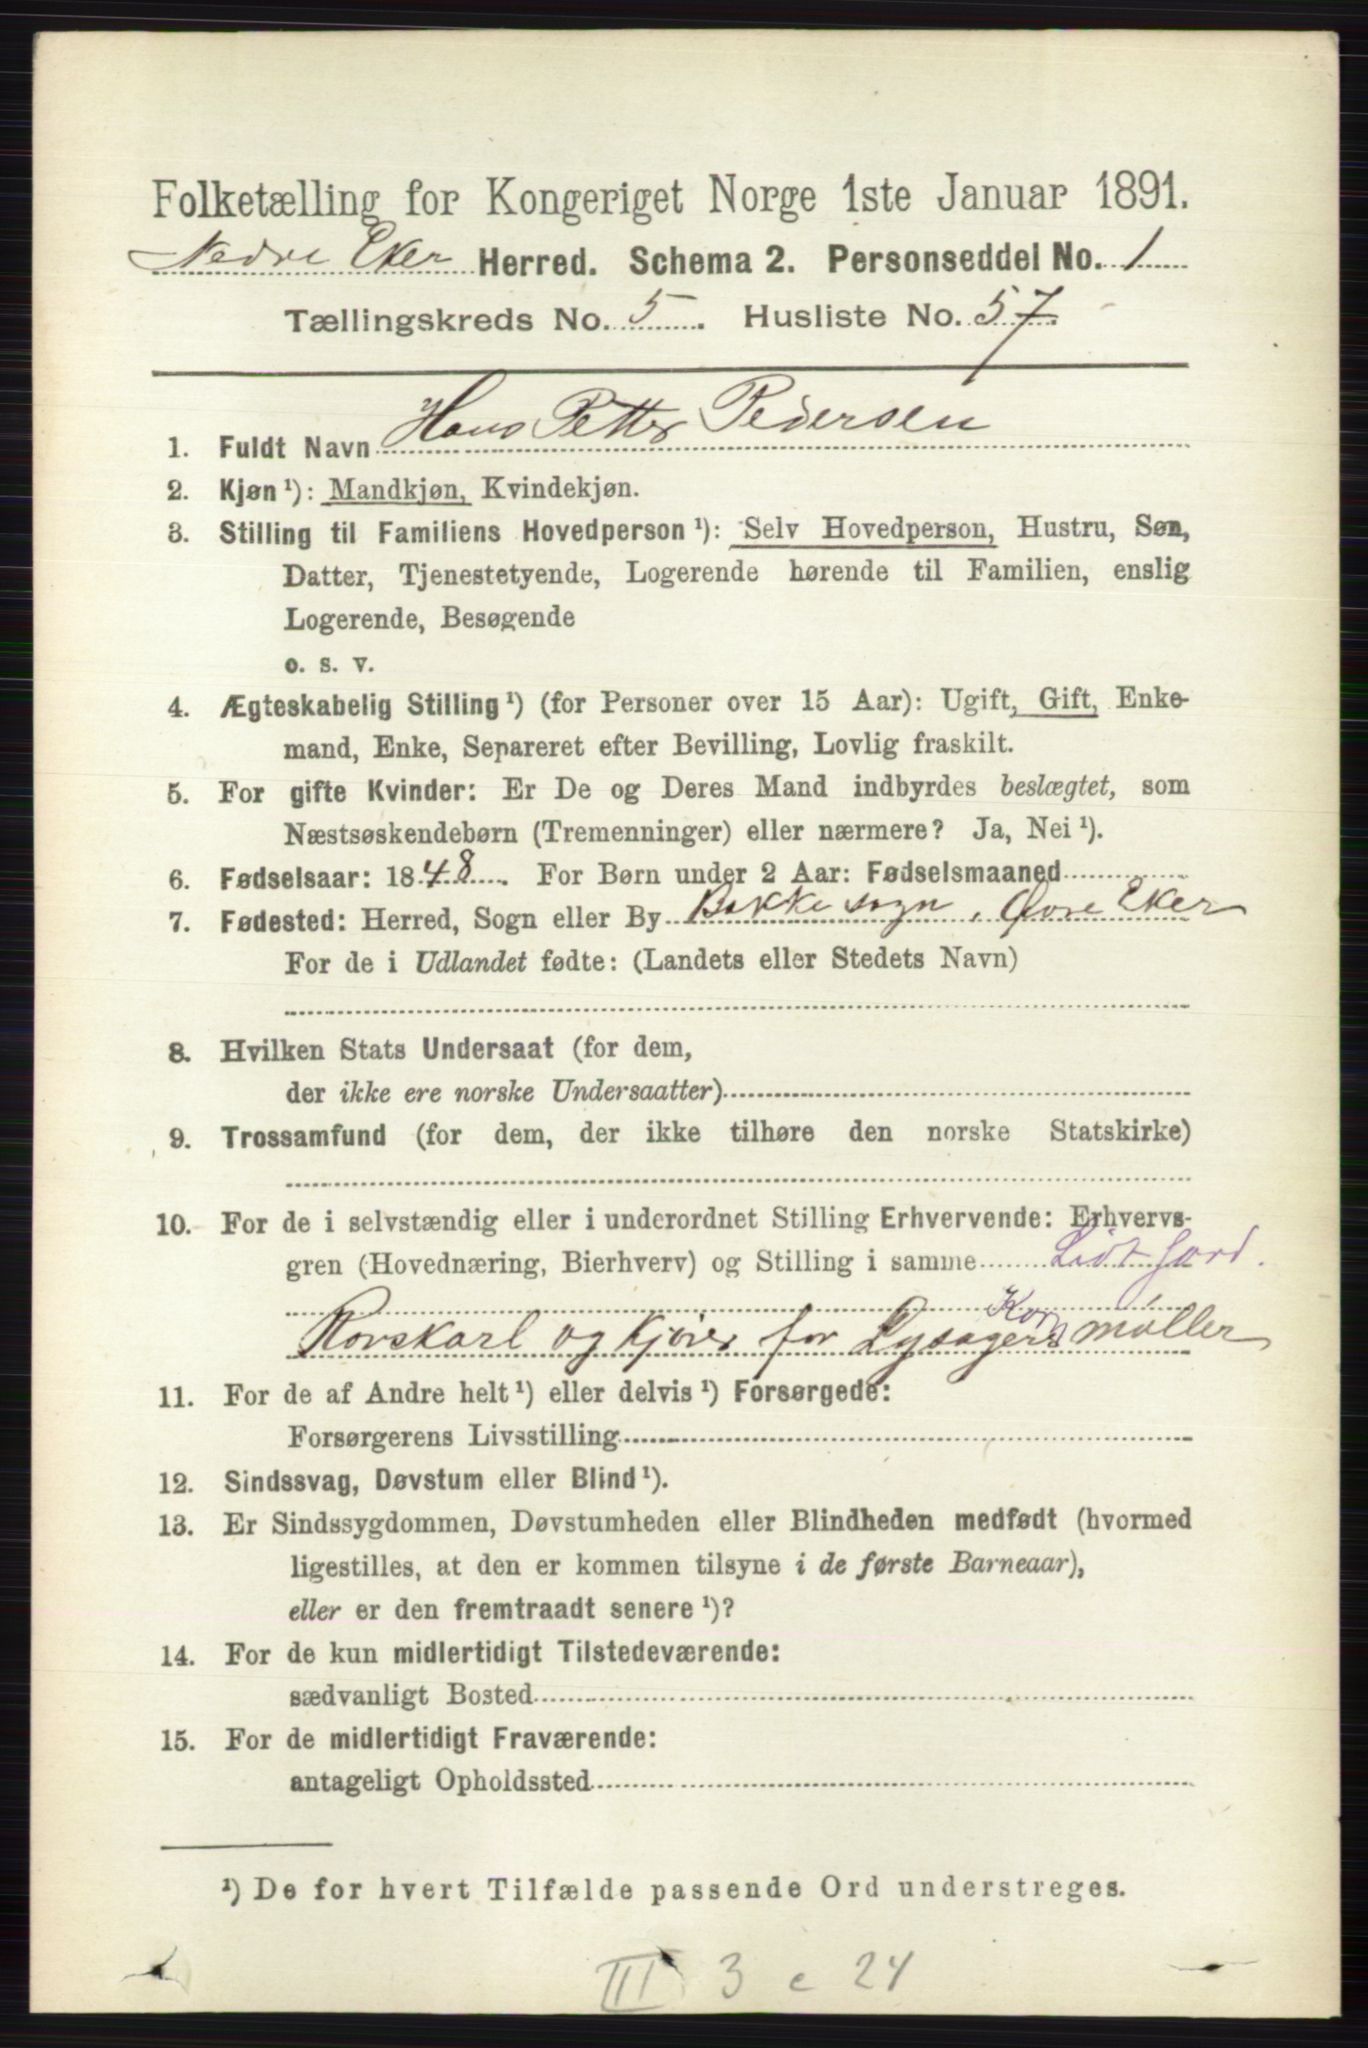 Folketælling for Kongeriget Norge 1ste Januar 1891.
Nedre Eker Herred. Schema 2. Personseddel No. 1
Tællingskreds No. 5. Husliste No. 57.
1. Fuldt Navn Hans Petter Pedersen
2. Kjøn ¹): Mandkjøn, Kvindekjøn.
3. Stilling til Familiens Hovedperson ¹): Selv Hovedperson, Hustru, Søn,
Datter, Tjenestetyende, Logerende hørende til Familien, enslig
Logerende, Besøgende
o. s. v.
4. Ægteskabelig Stilling ¹) (for Personer over 15 Aar): Ugift, Gift, Enke-
mand, Enke, Separeret efter Bevilling, Lovlig fraskilt.
5. For gifte Kvinder: Er De og Deres Mand indbyrdes beslægtet, som
Næstsøskendebørn (Tremenninger) eller nærmere? Ja, Nei ¹).
6. Fødselsaar: 1848. For Børn under 2 Aar: Fødselsmaaned
7. Fødested: Herred, Sogn eller By Bakke sogn, Øvre Eker
For de i Udlandet fødte: (Landets eller Stedets Navn)
8. Hvilken Stats Undersaat (for dem,
der ikke ere norske Undersaatter)
9. Trossamfund (for dem, der ikke tilhøre den norske Statskirke)
10. For de i selvstændig eller i underordnet Stilling Erhvervende: Erhvervs-
gren (Hovednæring, Bierhverv) og Stilling i samme Lidt Jord.
Korn
og Kjører for møller
11. For de af Andre helt ¹) eller delvis ¹) Forsørgede:
Forsørgerens Livsstilling
12. Sindssvag, Døvstum eller Blind ¹).
13. Er Sindssygdommen, Døvstumheden eller Blindheden medfødt (hvormed
ligestilles, at den er kommen tilsyne i de første Barneaar),
eller er den fremtraadt senere ¹)?
14. For de kun midlertidigt Tilstedeværende:
sædvanligt Bosted
15. For de midlertidigt Fraværende:
antageligt Opholdssted
¹) De for hvert Tilfælde passende Ord understreges.
III 3 c 24